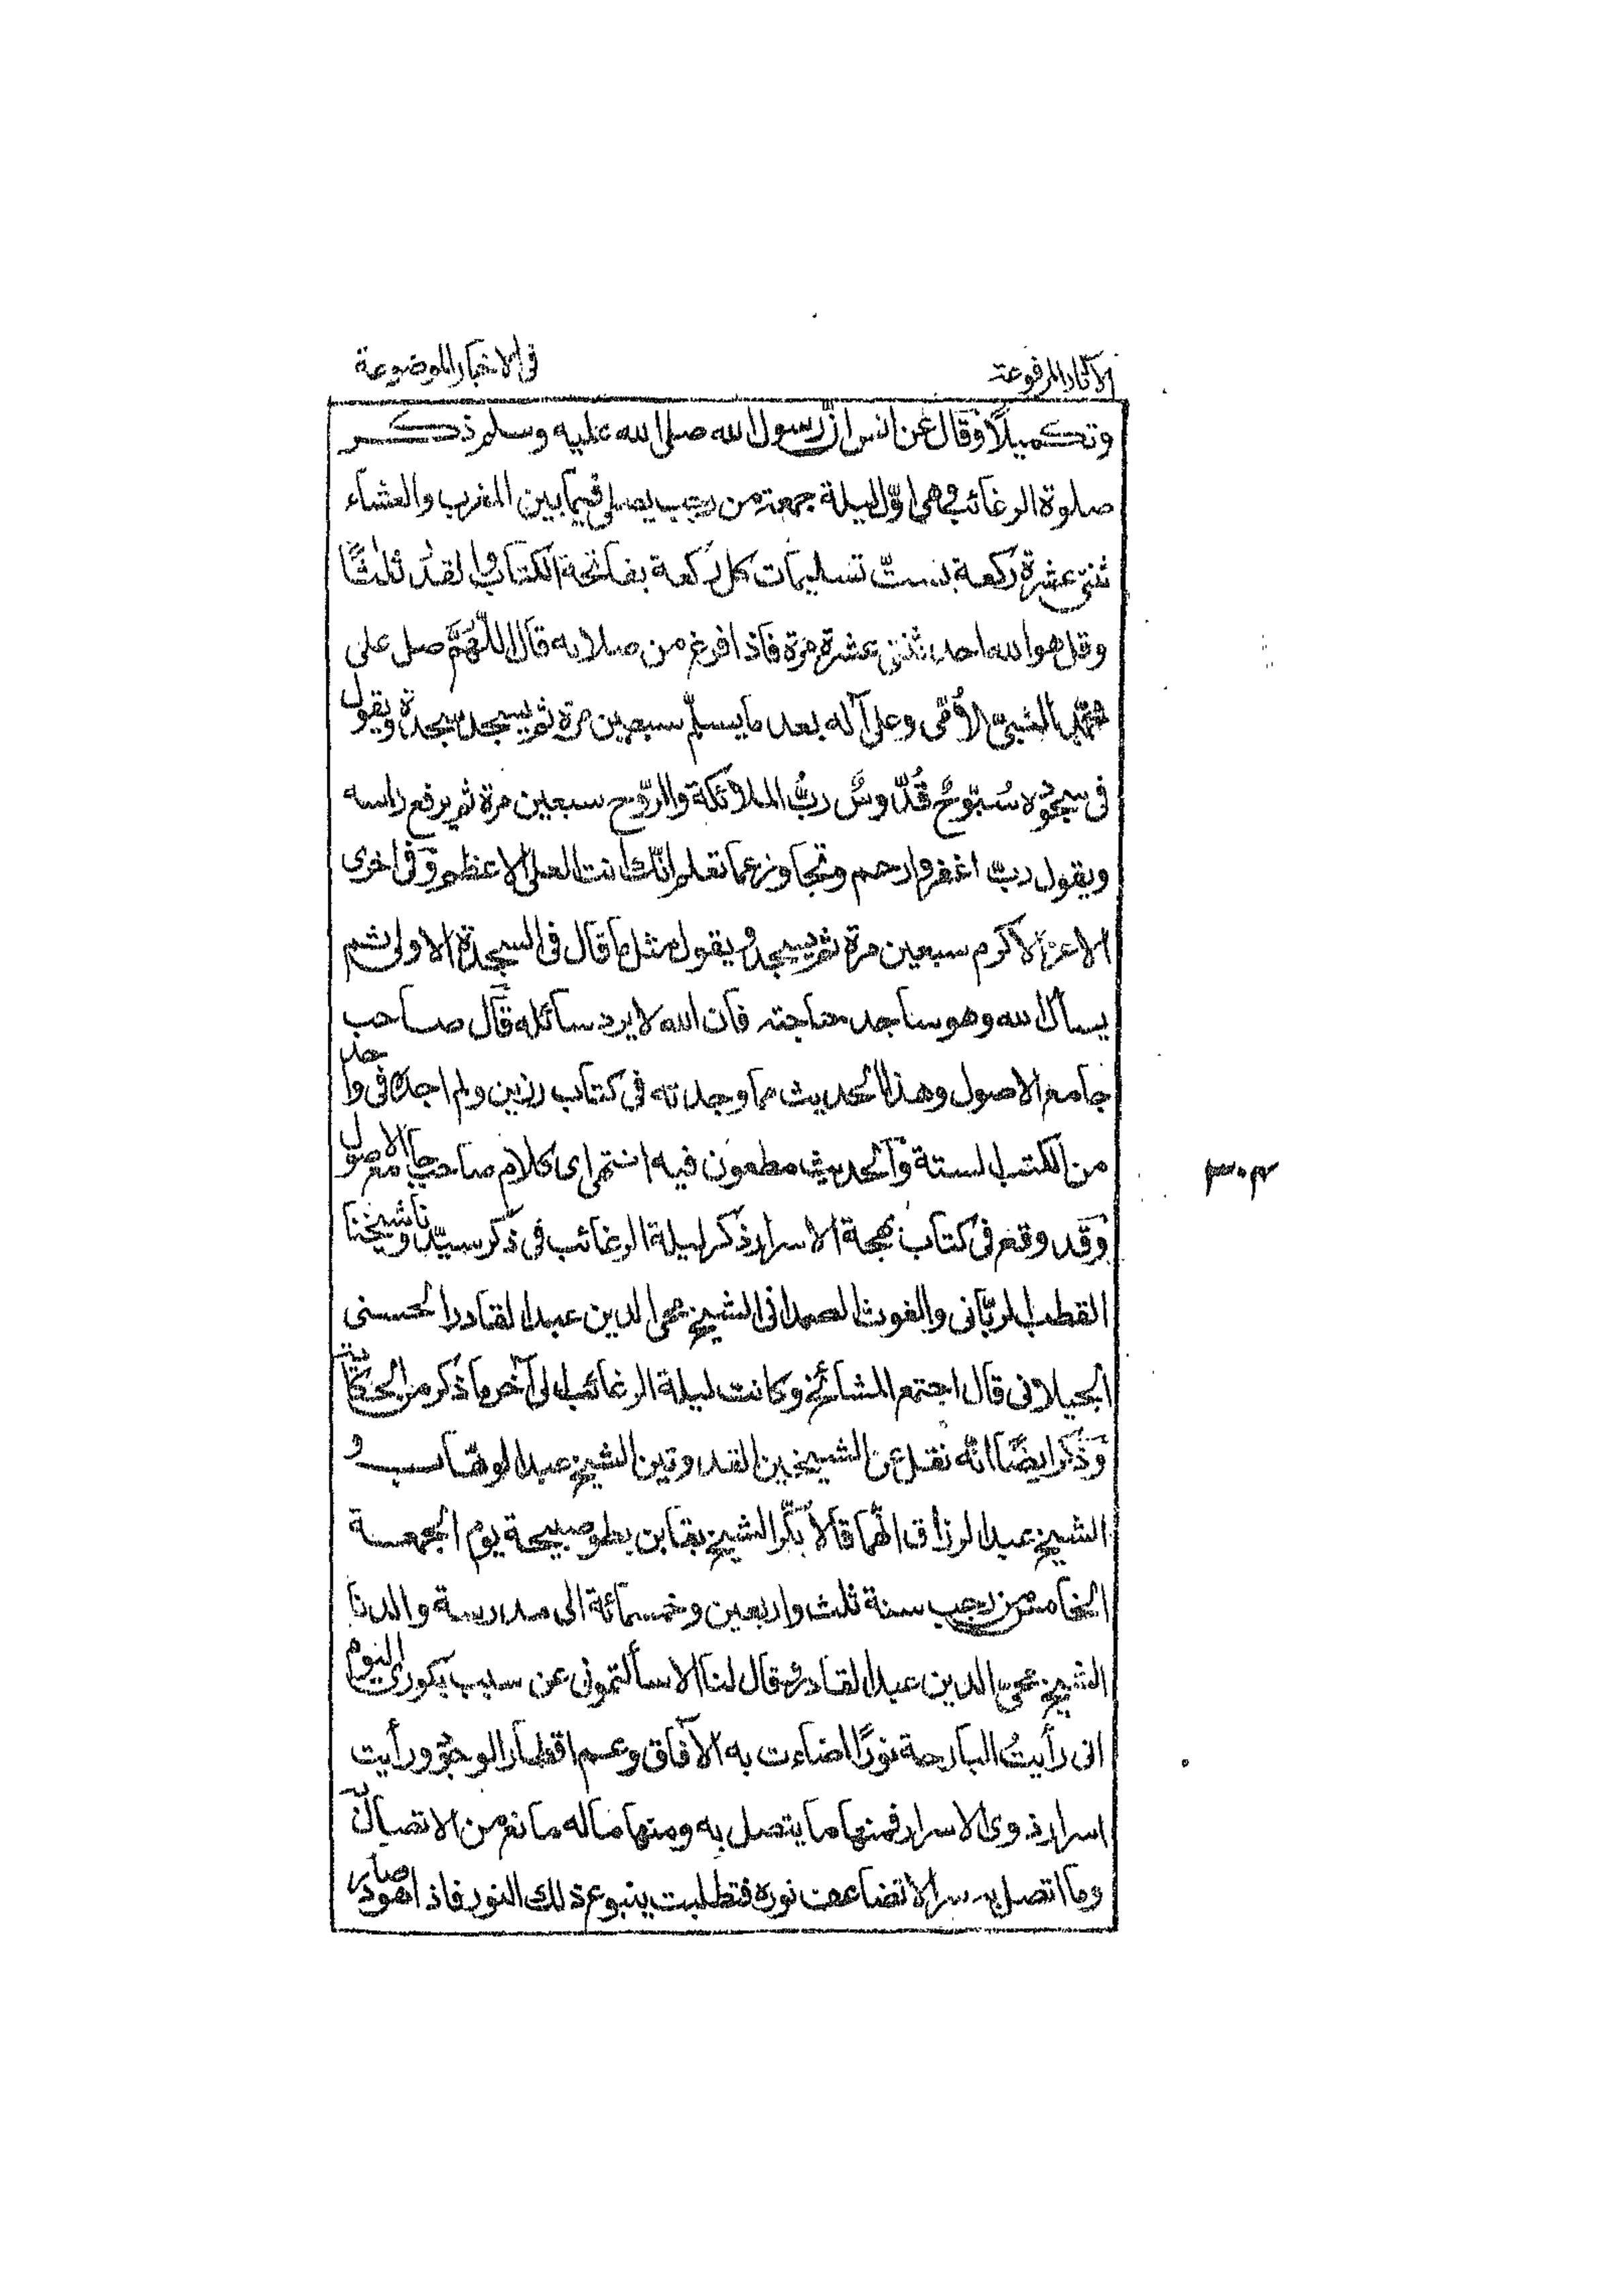 الآثار المرفوعة
فى الاخبار الموضوعة
وتكميلا وقال عن انس ان رسول الله صلى الله عليه وسلم ذكر
صلوة الرغائب وهى اوّل ليلة جمعة من رجب يصلى فيما بين المغرب والعشاء
ثنتى عشرة ركعة بستّ تسليمات كل ركعة بفاتحة الكتاب والقدر ثلثًا
وقل هو الله احد ثنتى عشرة مرة فاذا فرغ من صلاته قال اللّٰهُمَّ صل على
محمّد النبىّ الأُمّى وعلى آله بعد ما يسلّم سبعين مرة ثم يسجد سجدة ويقول
فى سجوده سُبّوحٌ قُدّوسٌ ربُّ الملائكة والرّوح سبعين مرة ثم يرفع راسه
ويقول ربّ اغفر وارحم وتجاوز عما تعلم انّك انت العلى الاعظم وفى اخرى
الاعز الاكرم سبعين مرة ثم يسجد ويقول مثل ما قال فى السجدة الاولى ثم
يسأل الله وهو ساجد حاجته فان الله لا يرد سائله قال صاحب
جامع الاصول وهذا الحديث مما وجدته فى كتاب رزين ولم اجده فى واحد
من الكتب الستة والحديث مطعون فيه انتهى كلام صاحب جامع الاصول
وقد وقع فى كتاب بهجة الاسرار ذكر ليلة الرغائب فى ذكر سيّدنا وشيخنا
القطب الربّانى والغوث الصمدانى الشيخ محى الدين عبد القادر الحسنى
الجيلانى قال اجتمع المشائخ وكانت ليلة الرغائب الى آخر ما ذكر من الحكاية
وذكر ايضًا انّه نقل عن الشيخين القدوتين الشيخ عبد الوهّاب و
الشيخ عبد الرزاق انّهما قالا بكّر الشيخ بقا بن بطو صبيحة يوم الجمعة
الخامس من رجب سنة ثلث واربعين وخمسمائة الى مدرسة والدنا
الشيخ محىّ الدين عبد القادر وقال لنا الا سألتمونى عن سبب بكورى اليوم
انى رأيتُ البارحة نورًا اضاءت به الآفاق وعم اقطار الوجود ورأيت
اسرار ذوى الاسرار فمنها ما يتصل به ومنها ما له مانع من الاتصال
وما اتصل به سر الا تضاعف نوره فتطلبت ينبوع ذلك النور فاذا هو صادر
٣٠٣